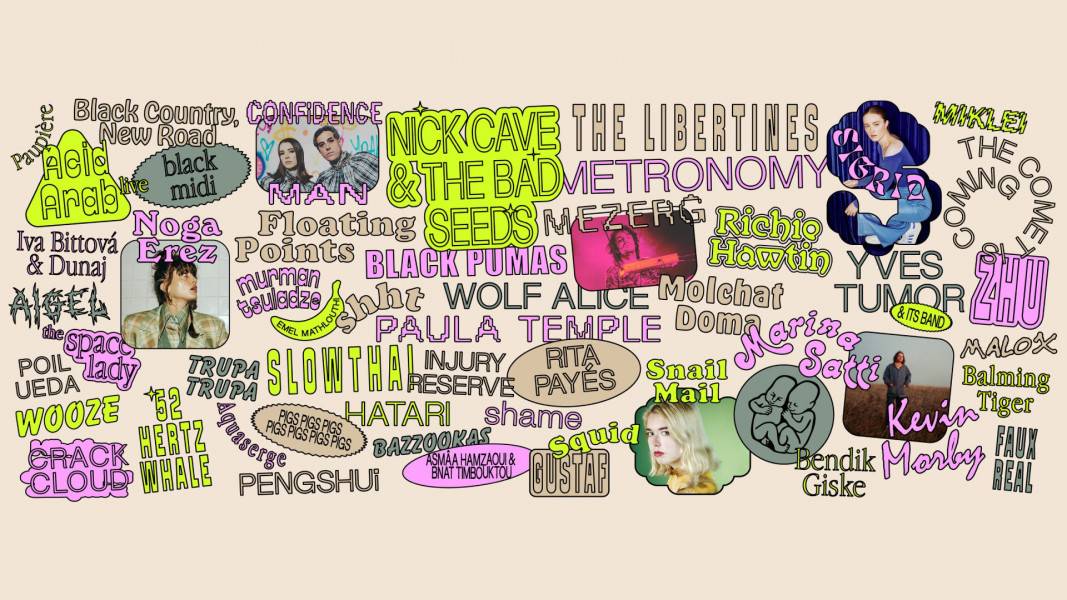 Paupière
Black Country,
New Road
CONFiDENCE
MAN
NICK CAVE
& THE BAD
SEEDS
THE LIBERTINES
METRONOMY
SIGRID
MIKLEI
THE COMET IS COMING
Acid
Arab
live
black
midi
Noga
Erez
Floating
Points
MEZERG
Richie
Hawtin
Iva Bittová
& Dunaj
murman
tsuladze
BLACK PUMAS
YVES
TUMOR
& ITS BAND
ZHU
AIGEL
EMEL MATHLOUTHI
shht
WOLF ALICE
Molchat
Doma
PAULA TEMPLE
the
space
lady
Marina
Satti
MALOX
POIL
UEDA
TRUPA
TRUPA
SLOWTHAI
INJURY
RESERVE
RITA
PAYÉS
Snail
Mail
Balming
Tiger
WOOZE
52
HERTZ
WHALE
Aquaserge
PIGS PIGS PIGS
PIGS PIGS PIGS PIGS
HATARI
shame
Kevin
Morby
CRACK
CLOUD
PENGSHUi
BAZZOOKAS
ASMÂA HAMZAOUI &
BNAT TIMBOUKTOU
Squid
GUSTAF
Bendik
Giske
FAUX
REAL